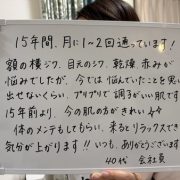 15年間、月に1~2回通っています!
額の横ジワ、目元のシワ、乾燥 赤みが
悩みでしたが、今では悩んでいたことを思い
出せないくらい、プリプリで調子がいい肌です
15年前より、今の肌の方がきれい
体のメンテもしてもらい、来るとリラックスでき
気分が上がります!! いつも、ありがとうございます
40代 会社員